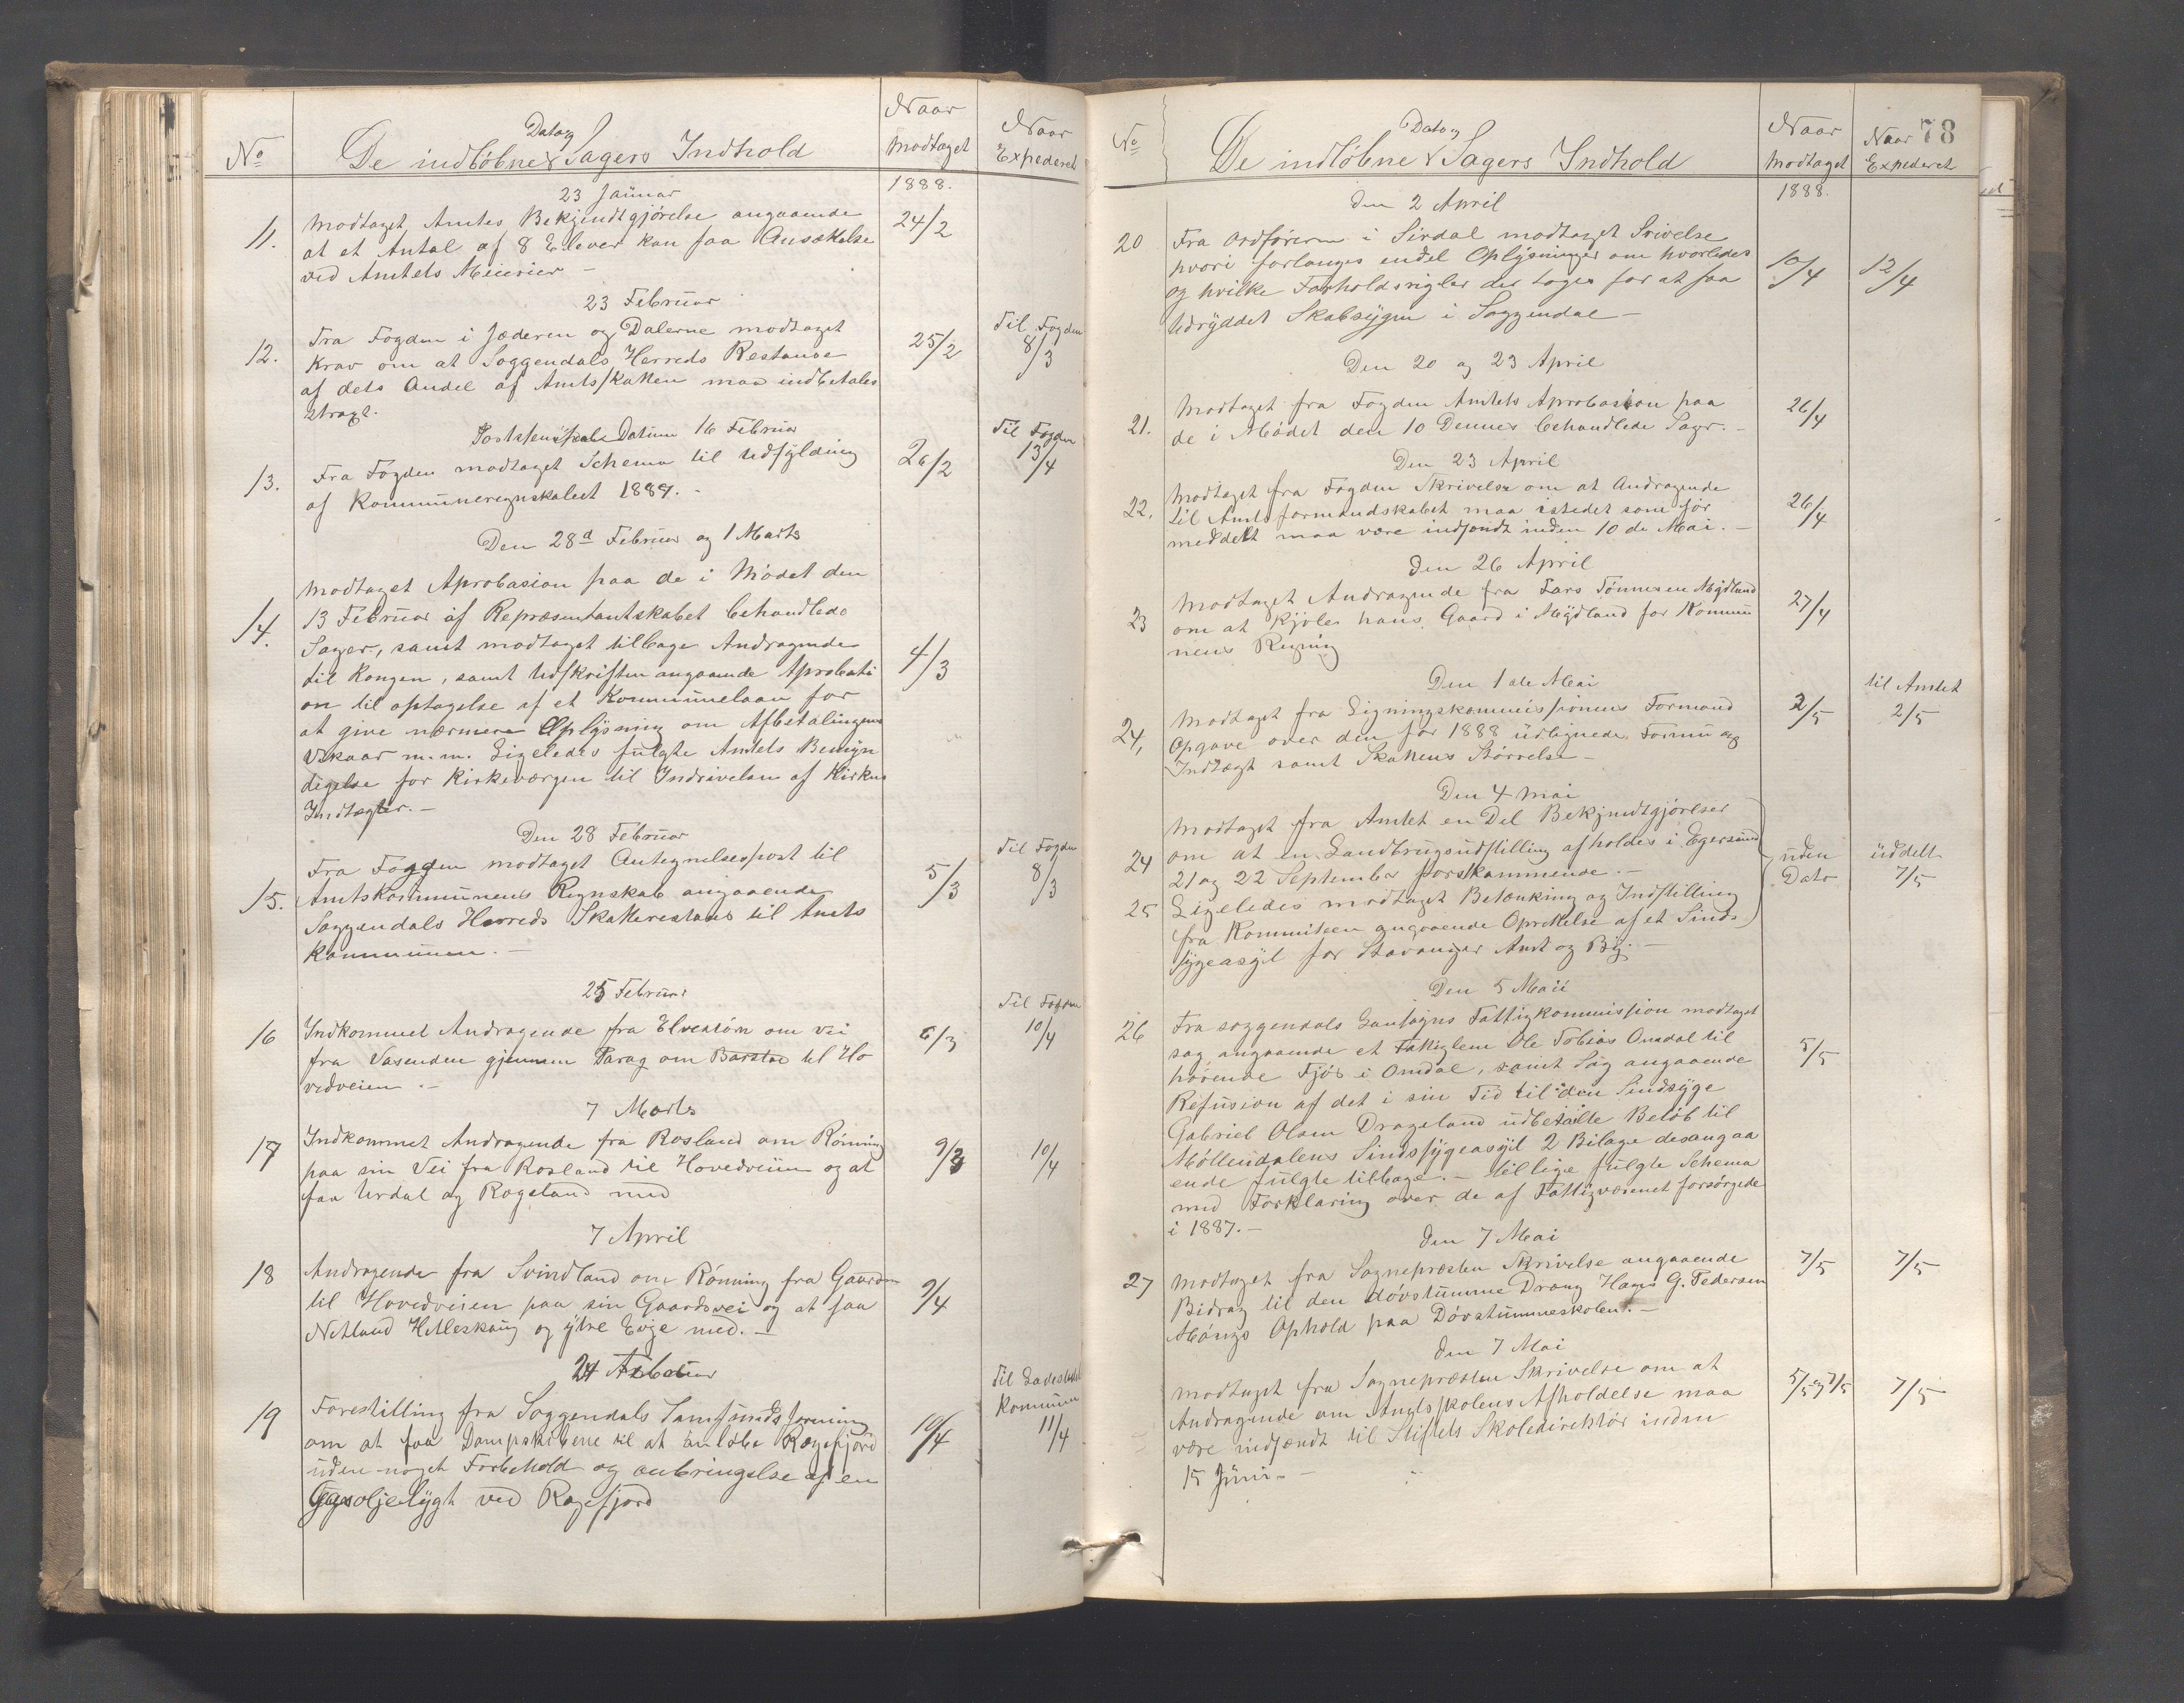 No
Dato og
De indløbne Sagers Indhold
Naar
Modtaget
Naar
Expederet
1888.
23 Januar
11.
Modtaget Amtes Bekjendtgjørelse angaaende
at et Antal af 8 Elever kan faa Ansættelse
ved Amtets Meierier –
24/2
23 Februar
12.
Fra Fogden i Jæderen og Dalerne modtaget
Krav om at Soggendals Herreds Restance
af dets Andel af Amtsskatten maa indbetales
strax.
25/2
Til Fogden
8/3
Datum 16 Februar
13.
Fra Fogden modtaget Schema til Udfylding
af Kommuneregnskabet 1887. –
26/2
Til Fogden
13/4
Den 28d Februar og 1 Marts
14.
Modtaget Aprobasion paa de i Mødet den
13 Februar af Repræsentantskabet behandlede
Sager, samt modtaget tilbage Andragende
til Kongen, samt Udskriften angaaende Aprobati
on til optagelse af et Kommunelaan for
at give nærmere Oplysning om Afbetalingens
Vilkaar m.m. Ligeledes fulgte Amtets Bemyn
digelse for Kirkeværgen til Indrivelsen af Kirkens
Indtægter. –
4/3
Den 28 Februar
15.
Fra Foggen modtaget Antegnelsespost til
Amtskommunens Regnskab angaaende
Soggendals Herreds Skatterestans til Amts
kommunen. –
5/3
Til Fogden
8/3
25 Februar
16
Indkommet Andragende fra Elvestøm om Vei
fra Vasenden gjennem Parag om Barstad til Ho
vedveien. –
6/3
Til Fogden
10/4
7 Marts
17
Indkommet Andragende fra Rosland om Rømning
paa sin Vei fra Rosland til Hovedveien og at
faa Urdal og Rogstand med
9/3
10/4
7 April
18
Andragende fra Svindland om Rømning fra Gaarden
til Hovedveien paa sin Gaardsvei og at faa
Netland Hetleskaug og ytre Evje med. –
9/4
24 Februar
19
Forestilling fra Soggendals Samfundsforening
om at faa Dampskibene til at anløbe Rægefjord
uden noget Forbehold og anbringelse af en
Gasoljelygt ved Ragefjord
10/4
Til Ladesteds
Kommunen
11/4
78
No
Dato og
De indløbne Sagers Indhold
Naar
Modtaget
Naar
Expederet
1888.
Den 2 April
20
Fra Ordføreren i Sirdal modtaget Srivelse
hvori forlanges endel Oplysninger om hvorledes
og hvilke Forholdsrigler der toges for at faa
Udryddet Skabsygen i Soggendal –
10/4
12/4
Den 20 og 23 April
21.
Modtaget fra Fogden Amtets Aprobasion paa
de i Mødet den 10 Dennes behandlede Sager. –
26/4
Den 23 April
22.
Modtaget fra Fogden Skrivelse om at Andragende
til Amtsformandskabet maa istedet som før
meddelt maa være indsendt inden 10 de Mai. –
26/4
Den 26 April
23
Modtaget Andragende fra Lars Tønnesen Mydland
om at Kjøles hans Gaard i Mydland for Kommu
nens Regning
27/4
Den 1 de Mai
24,
Modtaget fra Ligningskommissionens Formand
Opgave over den for 1888 udlignede Formu og
Indtægt samt Skattens Størrelse –
2/5
til Amtet
2/5
Den 4 Mai
24
Modtaget fra Amtet en Del Bekjendtgjørelser
om at en Landbrugsudstilling afholdes i Egersund
21 og 22 September førstkommende. –
25
Ligeledes modtaget Betænkning og Indstilling
fra Kommiteen angaaende Oprettelse af et Sinds
sygeasyl for Stavanger Amt og By. –
uden
Dato
uddelt
7/5
Den 5 Mai
26
Fra Soggendals Landsogns Fattigkommission modtaget
sag angaaende et Fattiglem Ole Tobias Omdal til
hørende Fjøs i Omdal, samt Sag angaaende
Refusion af det i sin Tid til den Sindsyge
Gabriel Olsen Drageland udbetalte Beløb til
Møllendalens Sindssygeasyl 2 Bilage desangaa
ende fulgte tilbage. – tillige fulgte Schema
med Forklaring over de af Fattigvæsenet forsørgede
i 1887. –
5/5
Den 7 Mai
27
Modtaget fra Sognepresten Skrivelse angaaende
Bidrag til den døvstumme Dreng Hans G. Pedersen
Mongs Ophold paa Døvstummeskolen. –
7/5
7/5
Den 7 Mai
Modtaget fra Sognepræsten Skrivelse om at
Andragende om Amtsskolens Afholdelse maa
være indsendt til Stiftets Skoledirektør inden
15 Juni –
5/5 og 7/5
7/5